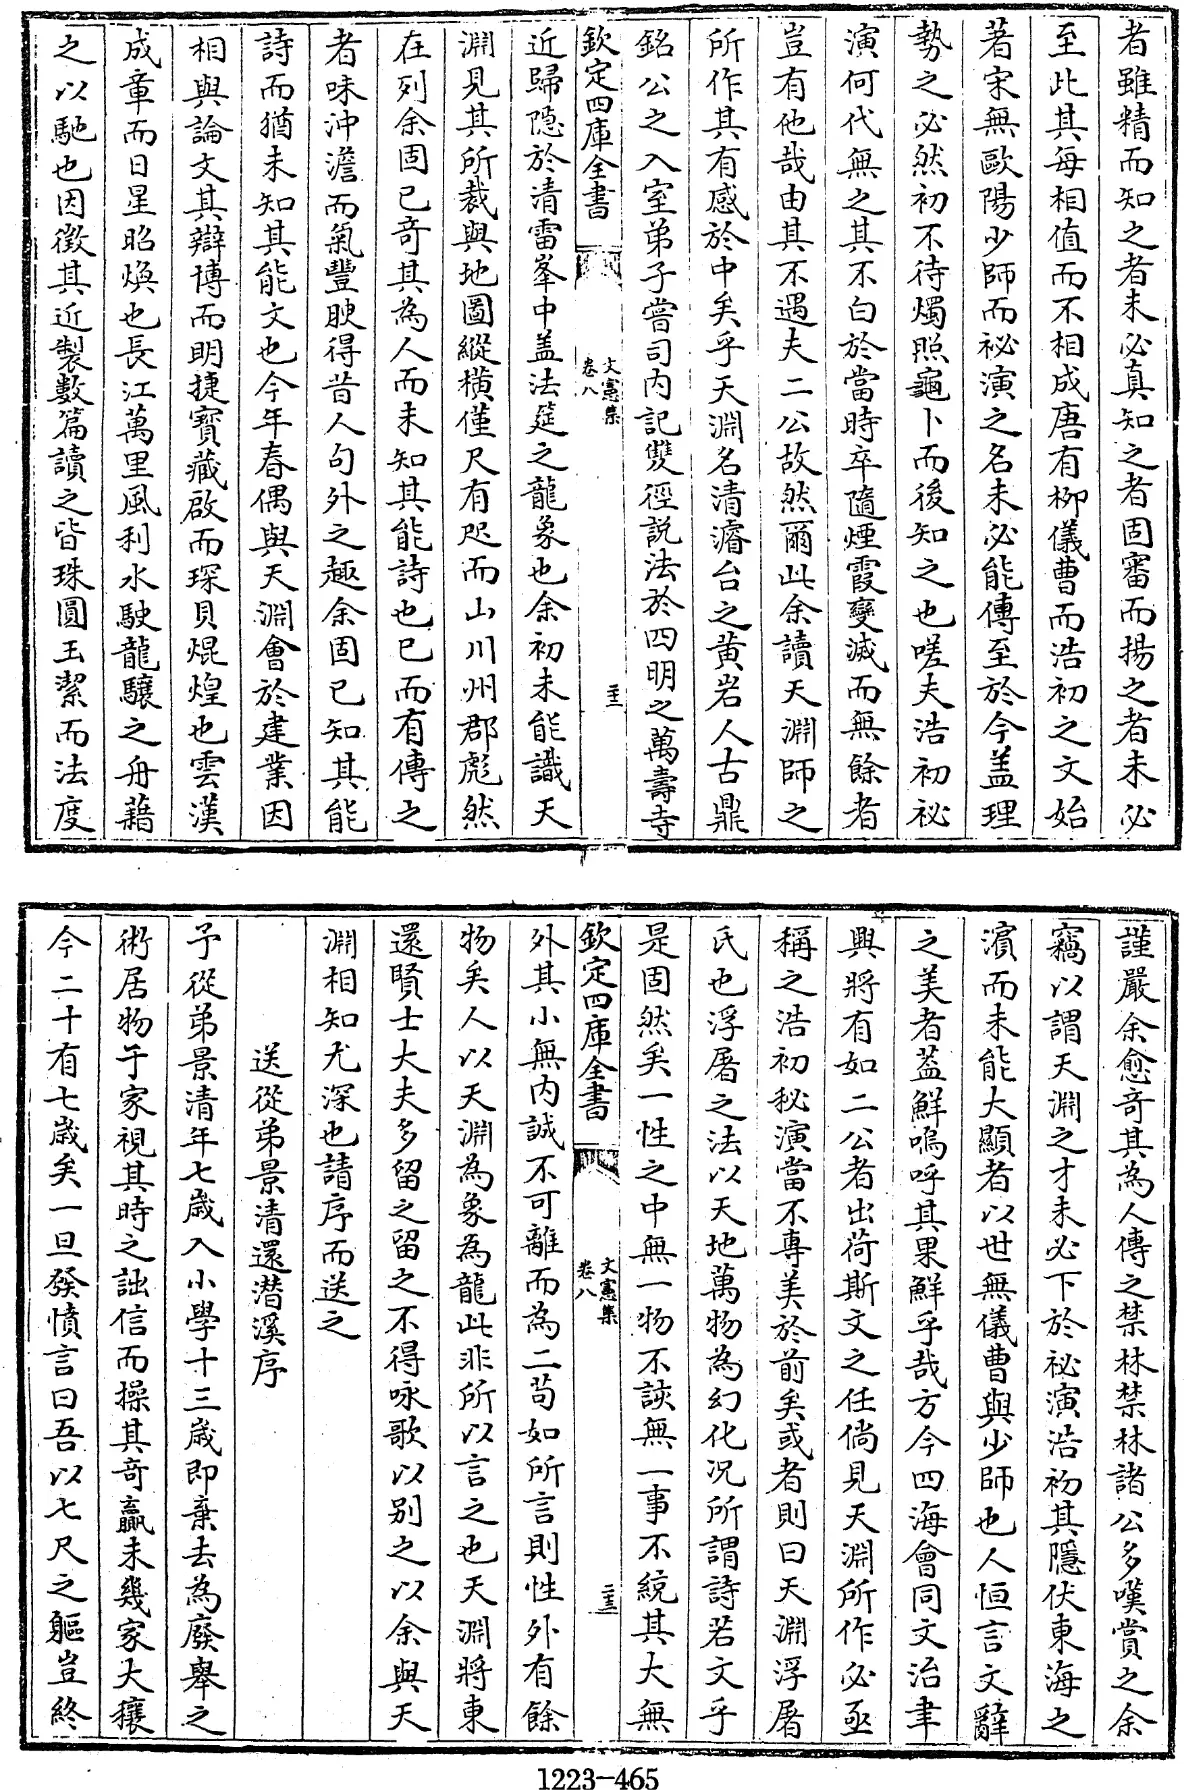 者雖精而知之者未必真知之者固審而揚之者未必
至此其每相值而不相成唐有柳儀曹而浩初之文始
著宋無歐陽少師而祕演之名未必能傳至於今盖理
勢之必然初不待燭照龜卜而後知之也嗟夫浩初祕
演何代無之其不白於當時卒隨煙霞變滅而無餘者
豈有他哉由其不遇夫二公故然爾此余讀天淵師之
所作其有感於中矣乎天淵名清濬台之黄岩人古鼎
銘公之入室弟子嘗司内記雙徑説法於四明之萬壽寺
欽定四庫全書
文憲集
卷八
二十三
近歸隠於清雷峯中盖法筵之龍象也余初未能識天
淵見其所裁與地圖縱横僅尺有咫而山川州郡彪然
在列余固已奇其為人而未知其能詩也已而有傳之
者味沖澹而氣豐腴得昔人句外之趣余固已知其能
詩而猶未知其能文也今年春偶與天淵會於建業因
相與論文其辯博而明捷寳藏啟而琛貝焜煌也雲漢
成章而日星昭煥也長江萬里風利水駛龍驤之舟藉
之以馳也因徵其近製數篇讀之皆珠圓玉潔而法度
謹嚴余愈竒其為人傳之禁林禁林諸公多嘆賞之余
竊以謂天淵之才未必下於祕演浩初其隱伏東海之
濵而未能大顯者以世無儀曹與少師也人恒言文辭
之美者葢鮮嗚呼其果鮮乎哉方今四海會同文治聿
興將有如二公者出荷斯文之任倘見天淵所作必亟
稱之浩初秘演當不專美於前矣或者則曰天淵浮屠
氏也浮屠之法以天地萬物為幻化况所謂詩若文乎
是固然矣一性之中無一物不該無一事不統其大無
欽定四庫全書
文憲集
卷八
二十三
外其小無内誠不可離而為二苟如所言則性外有餘
物矣人以天淵為象為龍此非所以言之也天淵將東
還賢士大夫多留之留之不得咏歌以别之以余與天
淵相知尤深也請序而送之
送從弟景清還潜溪序
予從弟景清年七歳入小學十三歳即棄去為廢舉之
術居物于家視其時之詘信而操其竒贏未幾家大穰
今二十有七歳矣一旦發憤言曰吾以七尺之軀豈終
1223-465